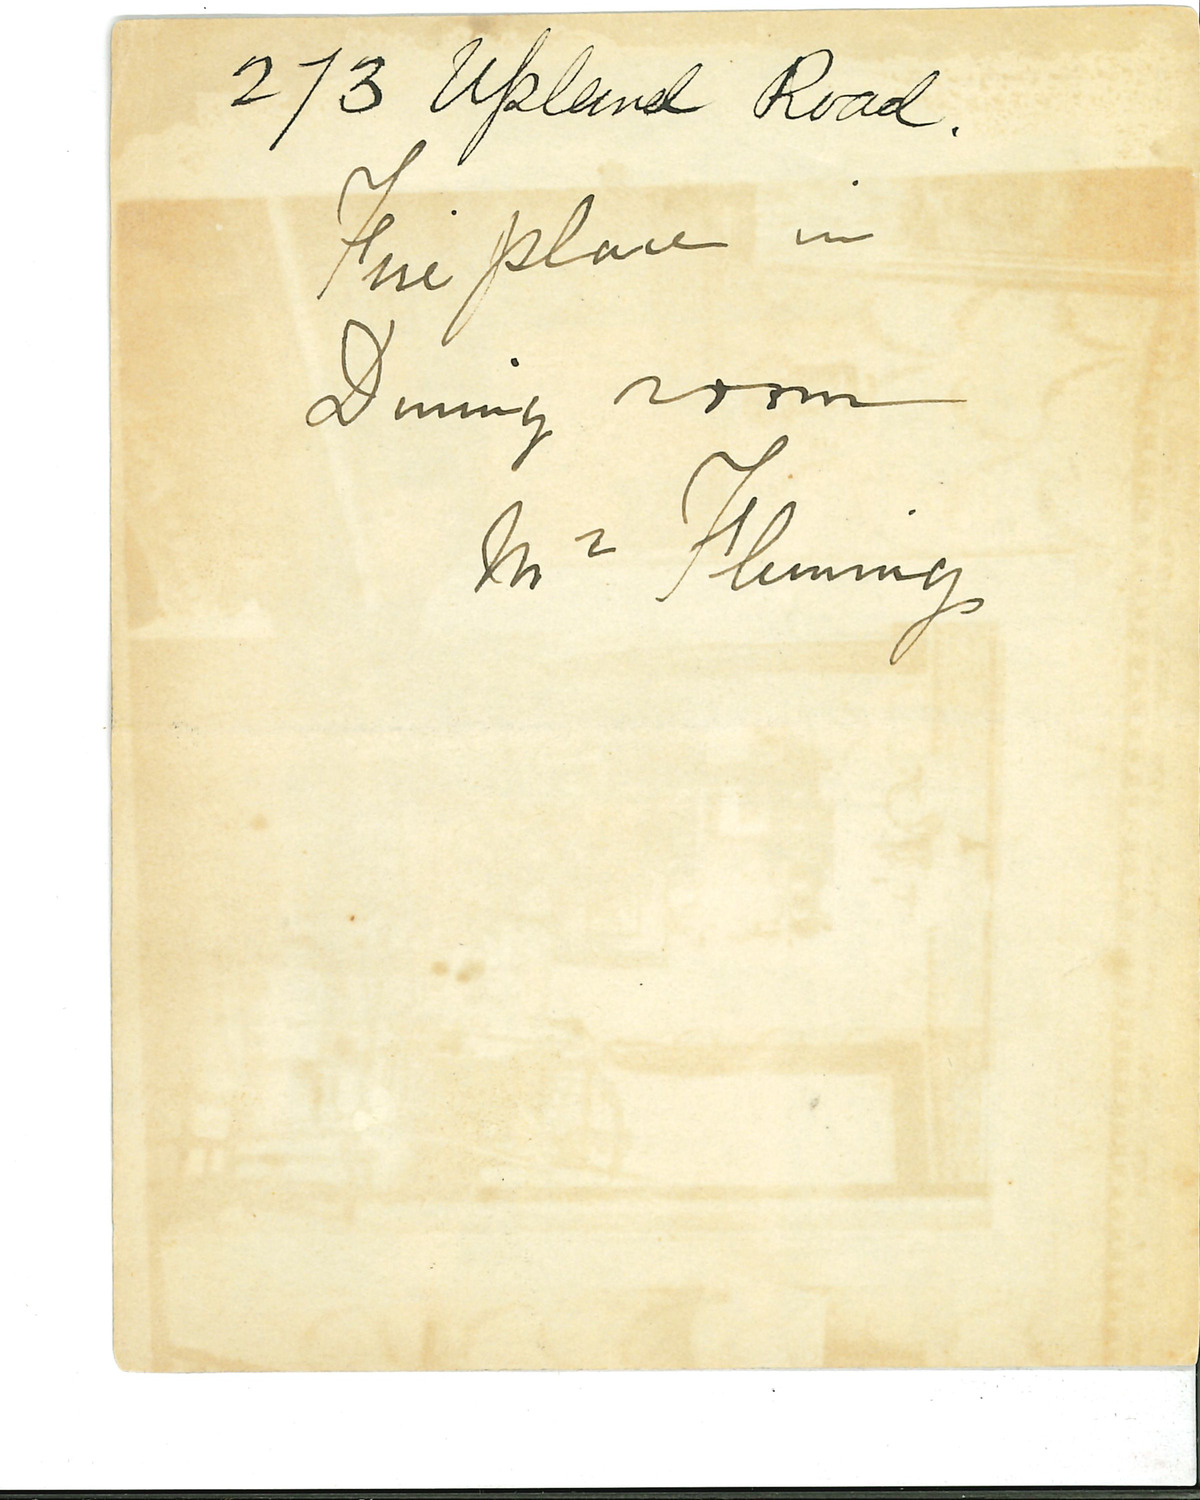 273 Upland Road.
Fire place in
Dining room
Mr Fleming